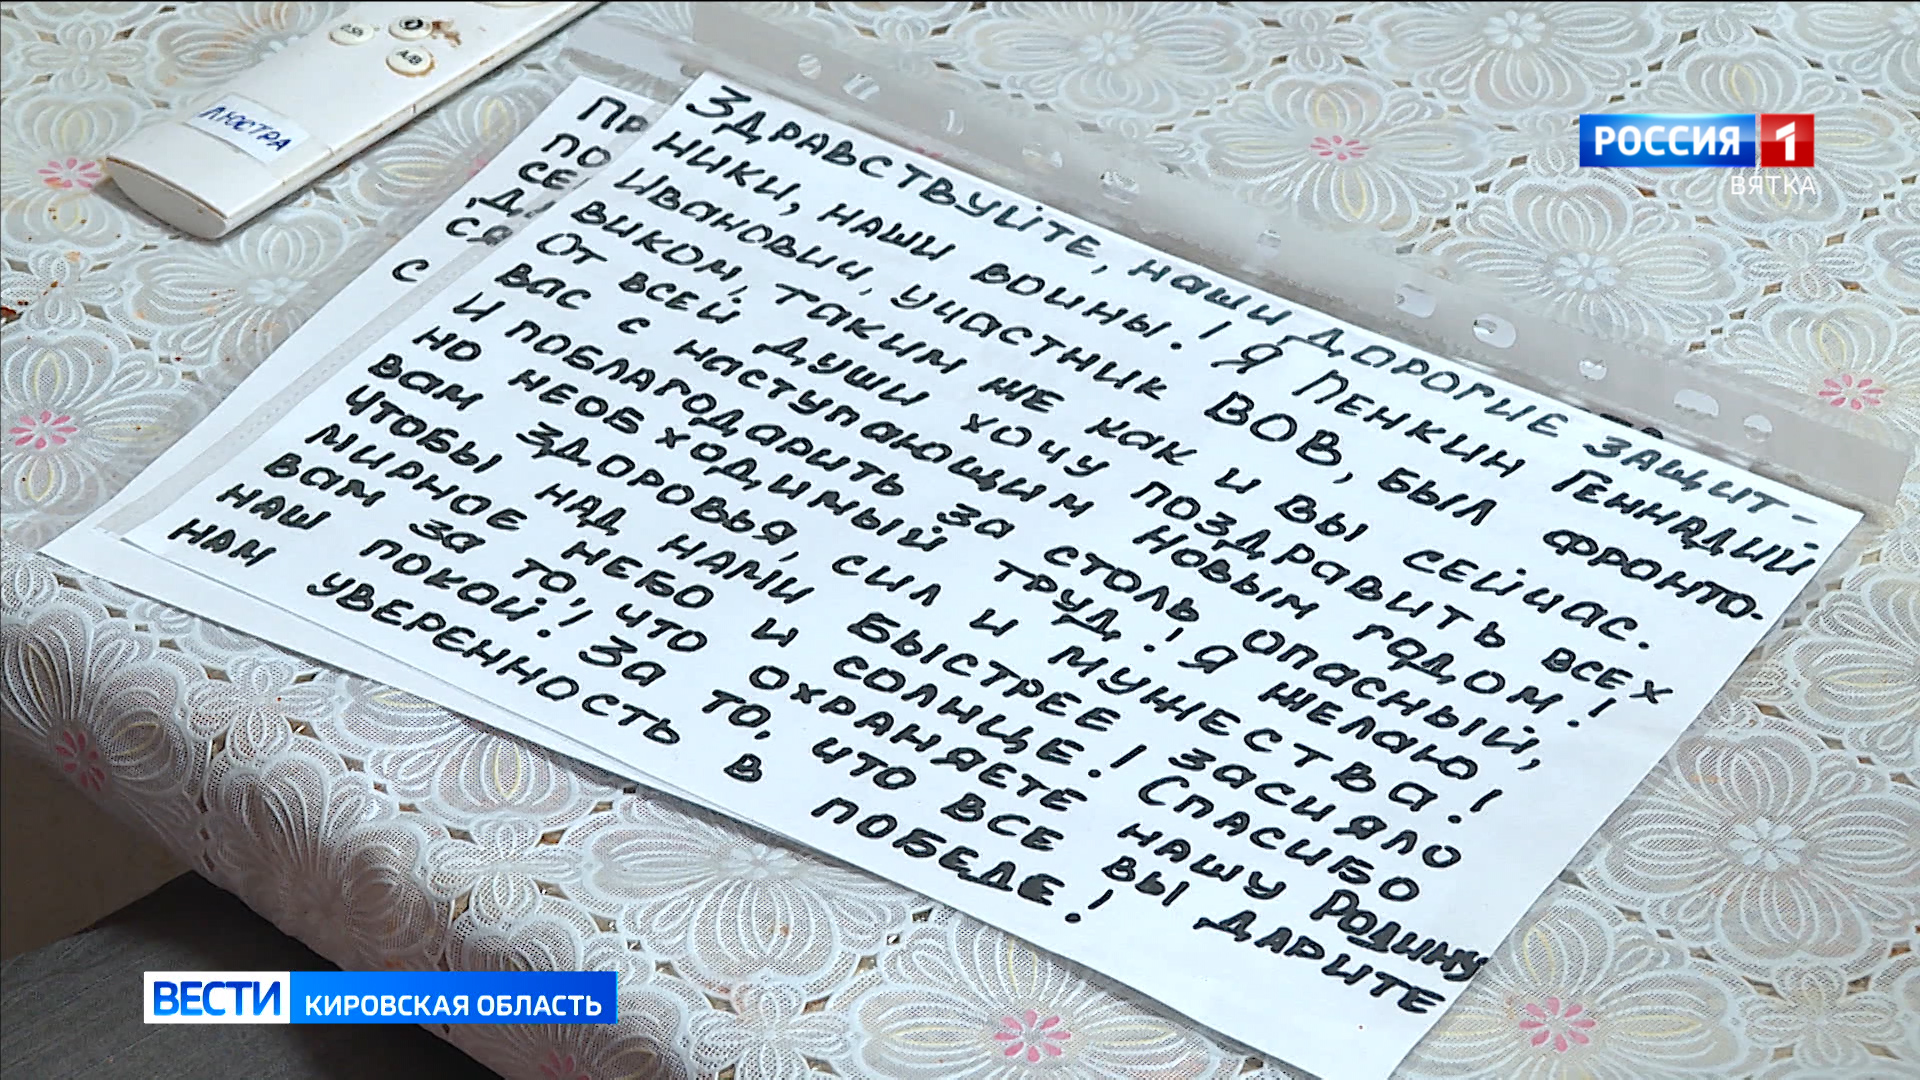 ЛЮСТРА
РОССИЯ 1
ВЯТКА
Здравствуйте, наши дорогие защит-
ники, наши воины! Я Пенкин Геннадий
Иванович, участник ВОВ, был фронто-
виком, таким же как и вы сейчас.
От всей души хочу поздравить всех
вас с наступающим новым годом!
И поблагодарить за столь опасный,
но необходимый труд! Я желаю
вам здоровья, сил и мужества!
Чтобы над нами быстрее засияло
мирное небо и солнце! Спасибо
вам за то, что охраняете нашу Родину
наш покой! За то, что все вы дарите
нам уверенность в победе!
ВЕСТИ КИРОВСКАЯ ОБЛАСТЬ